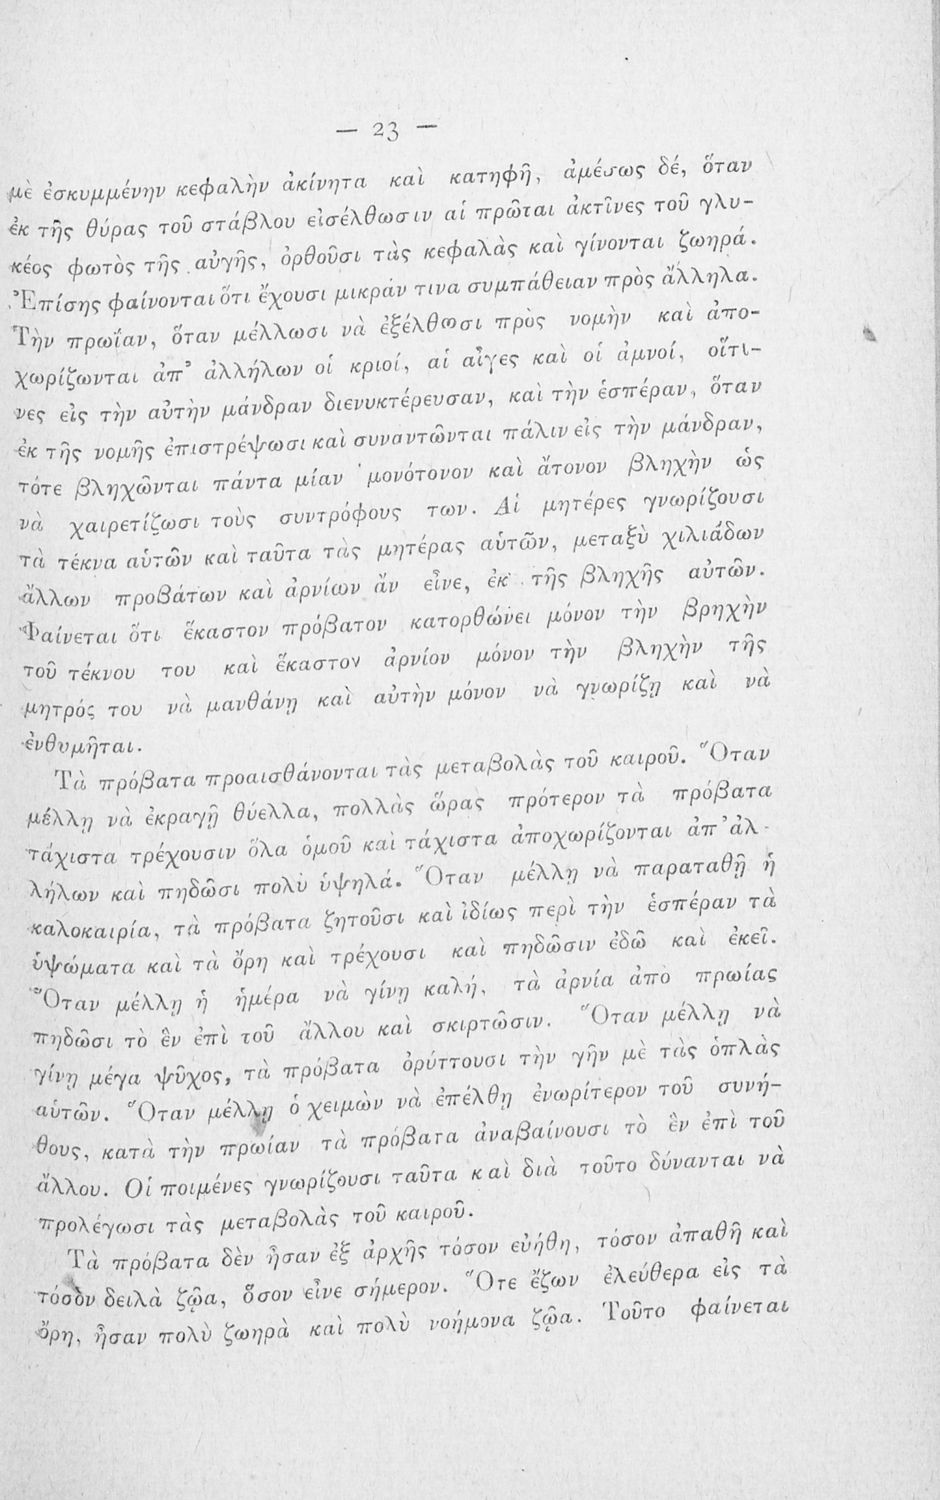 — 23 —
μὲ ἐσκυμμένην κεφαλὴν ἀκίνητα καὶ κατηφῆ, ἀμέσως δέ, ὅταν
ἐκ τῆς θύρας τοῦ στάβλου εἰσέλθωσιν αἱ πρῶται ἀκτῖνες τοῦ γλυ-
κέος φωτὸς τῆς αὐγῆς, ὀρθοῦσι τὰς κεφαλὰς καὶ γίνονται ζωηρά.
Ἐπίσης φαίνονται ὅτι ἔχουσι μικράν τινα συμπάθειαν πρὸς ἄλληλα.
Τὴν πρωΐαν, ὅταν μέλλωσι νὰ ἐξέλθωσι πρὸς νομὴν καὶ ἀπο-
χωρίζωνται ἀπ᾽ ἀλλήλων οἱ κριοί, αἱ αἶγες καὶ οἱ ἀμνοί, οἵτι-
νες εἰς τὴν αὐτὴν μάνδραν διενυκτέρευσαν, καὶ τὴν ἑσπέραν, ὅταν
ἐκ τῆς νομῆς ἐπιστρέψωσι καὶ συναντῶνται πάλιν εἰς τὴν μάνδραν,
τότε βληχῶνται πάντα μίαν μονότονον καὶ ἄτονον βληχὴν ὡς
νὰ χαιρετίζωσι τοὺς συντρόφους των. Αἱ μητέρες γνωρίζουσι
τὰ τέκνα αὑτῶν καὶ ταῦτα τὰς μητέρας αὑτῶν, μεταξὺ χιλιάδων
ἄλλων προβάτων καὶ ἀρνίων ἂν εἶνε, ἐκ τῆς βληχῆς αὐτῶν.
Φαίνεται ὅτι ἕκαστον πρόβατον κατορθώνει μόνον τὴν βρηχὴν
τοῦ τέκνου του καὶ ἕκαστον ἀρνίον μόνον τὴν βληχὴν τῆς
μητρός του νὰ μανθάνῃ καὶ αὐτὴν μόνον νὰ γνωρίζῃ καὶ νὰ
ἐνθυμῆται.
Τὰ πρόβατα προαισθάνονται τὰς μεταβολὰς τοῦ καιροῦ. Ὅταν
μέλλῃ νὰ ἐκραγῇ θύελλα, πολλὰς ὥρας πρότερον τὰ πρόβατα
τάχιστα τρέχουσιν ὅλα ὁμοῦ καὶ τάχιστα ἀποχωρίζονται ἀπ᾽ ἀλ-
λήλων καὶ πηδῶσι πολὺ ὑψηλά. Ὅταν μέλλῃ νὰ παραταθῇ ἡ
καλοκαιρία, τὰ πρόβατα ζητοῦσι καὶ ἰδίως περὶ τὴν ἑσπέραν τὰ
ὑψώματα καὶ τὰ ὄρη καὶ τρέχουσι καὶ πηδῶσιν ἐδῶ καὶ ἐκεῖ.
Ὅταν μέλλῃ ἡ ἡμέρα νὰ γίνῃ καλή, τὰ ἀρνία ἀπὸ πρωίας
πηδῶσι τὸ ἓν ἐπὶ τοῦ ἄλλου καὶ σκιρτῶσιν. Ὅταν μέλλῃ νὰ
γίνῃ μέγα ψῦχος, τὰ πρόβατα ὀρύττουσι τὴν γῆν μὲ τὰς ὁπλὰς
αὑτῶν. Ὅταν μέλλῃ ὁ χειμὼν νὰ ἐπέλθῃ ἐνωρίτερον τοῦ συνή-
θους, κατὰ τὴν πρωίαν τὰ πρόβατα ἀναβαίνουσι τὸ ἓν ἐπὶ τοῦ
ἄλλου. Οἱ ποιμένες γνωρίζουσι ταῦτα καὶ διὰ τοῦτο δύνανται νὰ
προλέγωσι τὰς μεταβολὰς τοῦ καιροῦ.
Τὰ πρόβατα δὲν ἦσαν ἐξ ἀρχῆς τόσον εὐήθη, τόσον ἀπαθῆ καὶ
τόσον δειλὰ ζῷα, ὅσον εἶνε σήμερον. Ὅτε ἔζων ἐλεύθερα εἰς τὰ
ὄρη, ἦσαν πολὺ ζωηρὰ καὶ πολὺ νοήμονα ζῷα. Τοῦτο φαίνεται